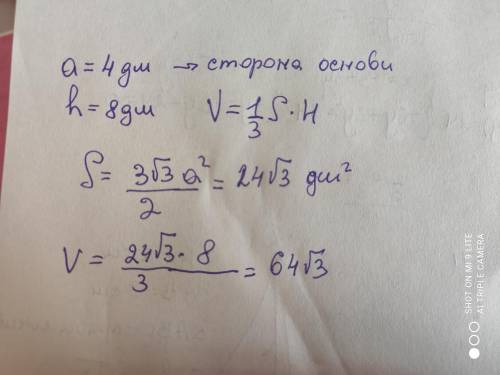 a = 4 дм → сторона основи
h = 8 дм V = 1/3 S · H
S = 3√3 a² / 2 = 24√3 дм²
V = 24√3 · 8 / 3 = 64√3
SHOT ON MI 9 LITE
AI TRIPLE CAMERA